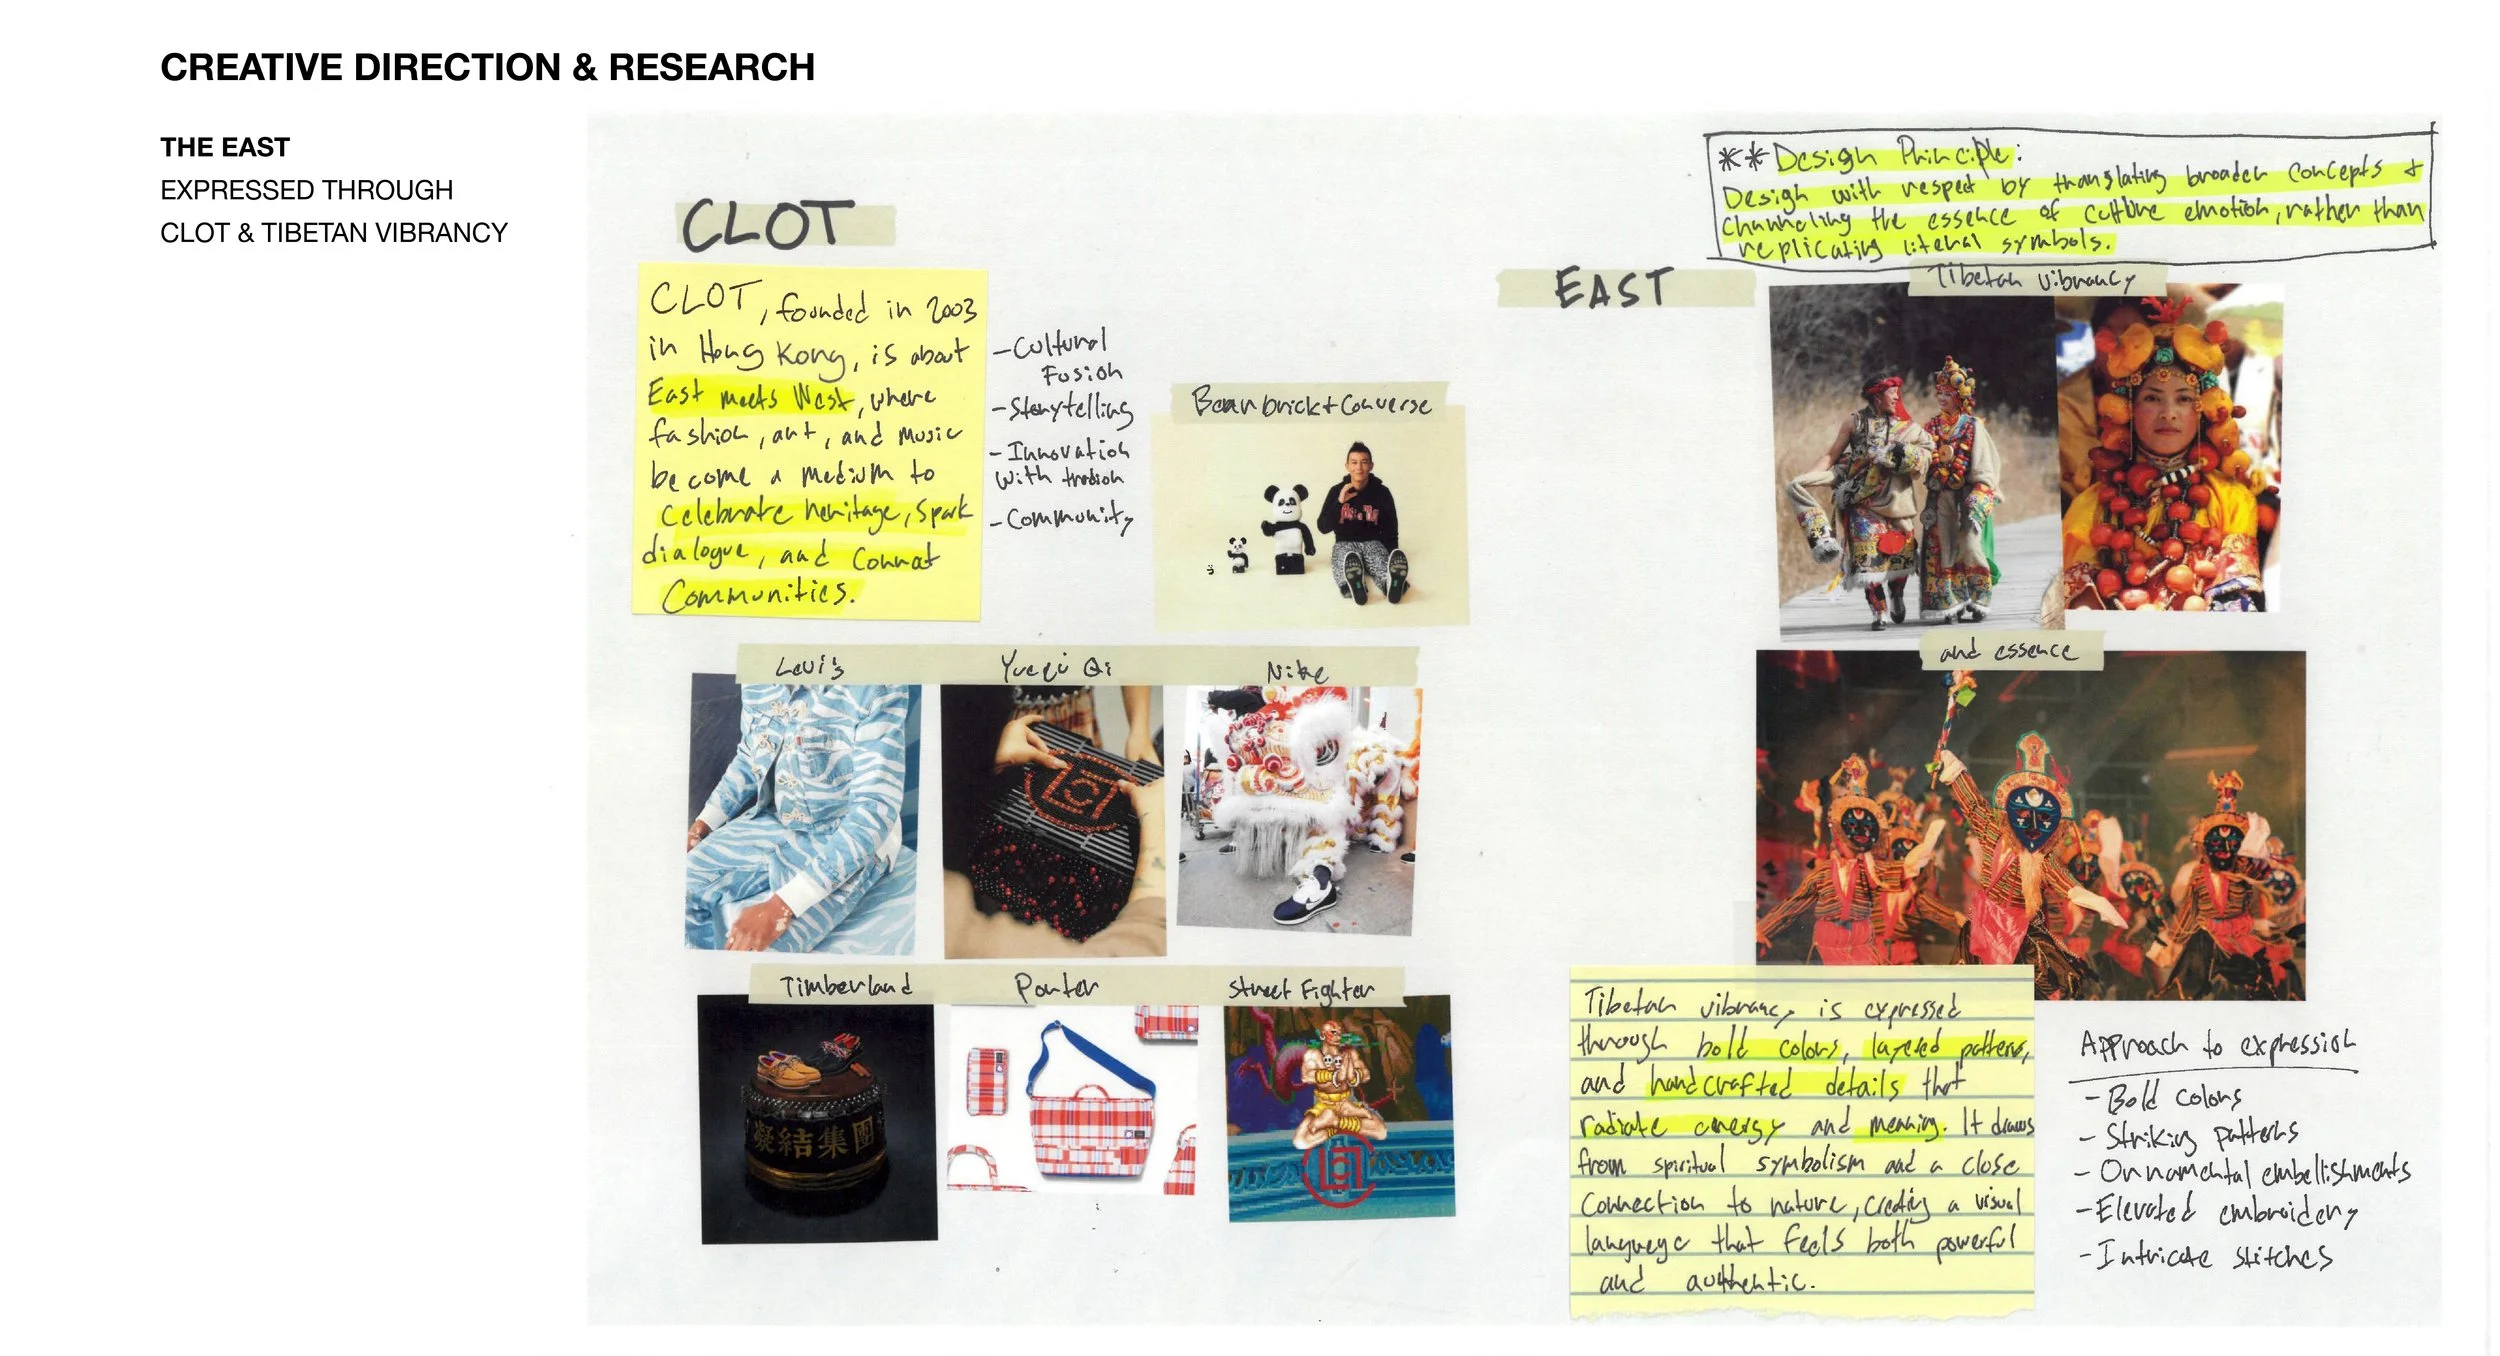 CREATIVE DIRECTION & RESEARCH
THE EAST
EXPRESSED THROUGH
CLOT & TIBETAN VIBRANCY
CLOT
CLOT, founded in 2003
in Hong Kong, is about
East meets West, where
fashion, art, and music
become a medium to
celebrate heritage, spark
dialogue, and connect
communities.
- Cultural
Fusion
- Storytelling
- Innovation
with tradition
- Community
Bearbrick + Converse
Levi's
Yueqi Qi
Nike
Timberland
Porter
Street Fighter
凝結集團
EAST
**Design Principle:
Design with respect by translating broader concepts &
channeling the essence of culture emotion, rather than
replicating literal symbols.
Tibetan vibrancy
and essence
Tibetan vibrancy is expressed
through bold colors, layered patterns,
and handcrafted details that
radiate energy and meaning. It draws
from spiritual symbolism and a close
connection to nature, creating a visual
language that feels both powerful
and authentic.
Approach to expression
- Bold colors
- Striking patterns
- Ornamental embellishments
- Elevated embroidery
- Intricate stitches